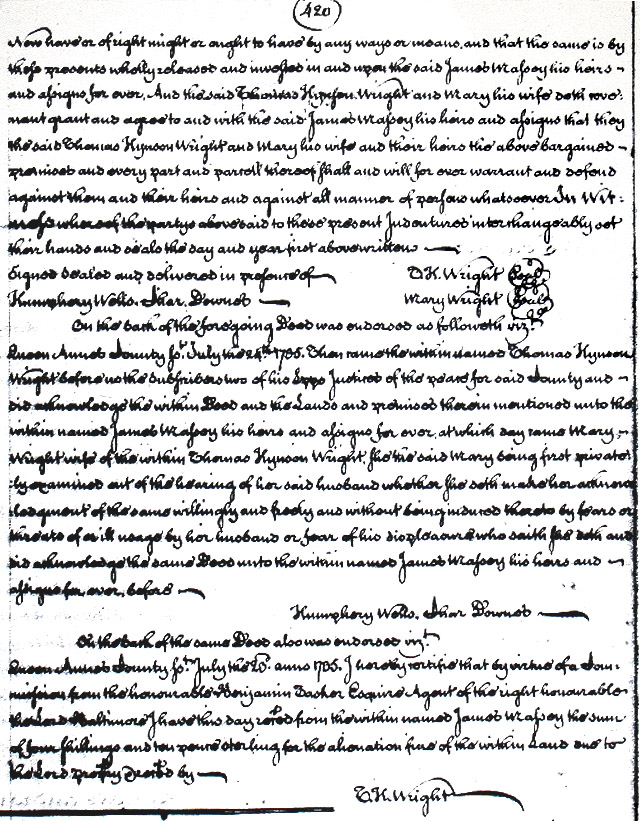 420
Now have or of right might or aught to have by any ways or means, and that the same is by
these presents wholly released and invested in and upon the said James Massey his heirs
and assigns for ever, And the said Thomas Hynson Wright and Mary his wife doth cove
nant grant and agree to and with the said James Massey his heirs and assigns that they
the said Thomas Hynson Wright and Mary his wife and their heirs the above bargained
premises and every part and parcell thereof shall and will for ever warrant and defend
against them and their heirs and against all manner of persons whatsoever In Wit:
ness whereof the partys above said to these present Indentures interchangeably set
their hands and seals the day and year first above written
Signed sealed and delivered in presence of T. H. Wright Seal
Humphery Wells. Char. Downes Mary Wright Seal
On the back of the foregoing Deed was endorsed as followeth viz.t
Queen Anne's County Ss.t July the 24th 1735. Then came the within named Thomas Hynson
Wright before us the Subscribers two of his Lpps Justices of the peace for said County and
did acknowledge the within Deed and the Lands and premises therein mentioned unto the
within named James Massey his heirs and assigns for ever, at which day came Mary
Wright wife of the within Thomas Hynson Wright, she the said Mary being first private
ly examined out of the hearing of her said husband whether she doth make her acknow
ledgment of the same willingly and freely and without being induced thereto by fears or
threats of or ill usage by her husband or fear of his displeasure who saith she doth and
did acknowledge the same Deed unto the within named James Massey his heirs and
assigns for ever, before
Humphery Wells. Char. Downes
On the back of the same Deed also was endorsed viz.t
Queen Anne's County Ss.t July the 25. anno 1735. I hereby certifie that by virtue of a Com
mission from the honourable Benjamin Tasker Esquire Agent of the right honourable
the Lord Baltimore I have this day reced from the within named James Massey the sum
of four shillings and ten pence sterling for the alienation fine of the within Land due to
the Lord prop.ry by
T. H. Wright